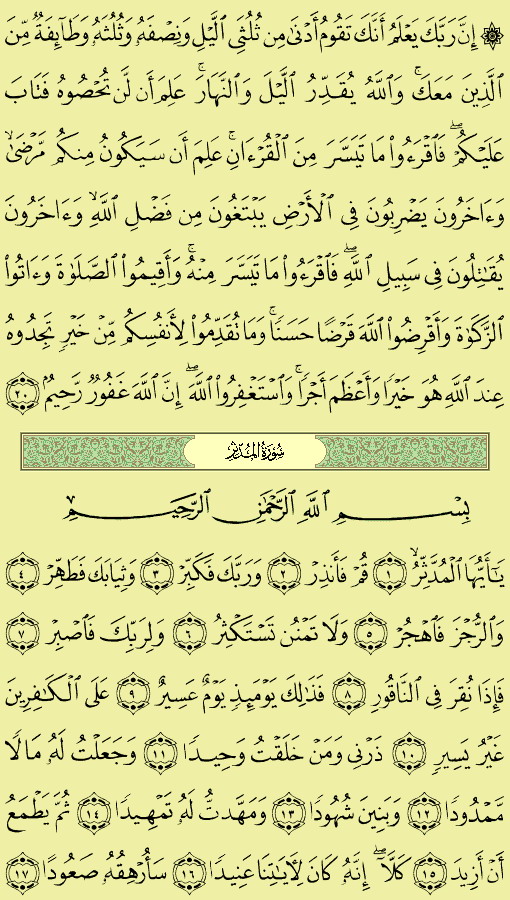 ۞ إِنَّ رَبَّكَ يَعْلَمُ أَنَّكَ تَقُومُ أَدْنَىٰ مِن ثُلُثَىِ ٱلَّيْلِ وَنِصْفَهُۥ وَثُلُثَهُۥ وَطَآئِفَةٌ مِّنَ
ٱلَّذِينَ مَعَكَ ۚ وَٱللَّهُ يُقَدِّرُ ٱلَّيْلَ وَٱلنَّهَارَ ۚ عَلِمَ أَن لَّن تُحْصُوهُ فَتَابَ
عَلَيْكُمْ ۖ فَٱقْرَءُوا۟ مَا تَيَسَّرَ مِنَ ٱلْقُرْءَانِ ۚ عَلِمَ أَن سَيَكُونُ مِنكُم مَّرْضَىٰ ۙ
وَءَاخَرُونَ يَضْرِبُونَ فِى ٱلْأَرْضِ يَبْتَغُونَ مِن فَضْلِ ٱللَّهِ ۙ وَءَاخَرُونَ
يُقَٰتِلُونَ فِى سَبِيلِ ٱللَّهِ ۖ فَٱقْرَءُوا۟ مَا تَيَسَّرَ مِنْهُ ۚ وَأَقِيمُوا۟ ٱلصَّلَوٰةَ وَءَاتُوا۟
ٱلزَّكَوٰةَ وَأَقْرِضُوا۟ ٱللَّهَ قَرْضًا حَسَنًا ۚ وَمَا تُقَدِّمُوا۟ لِأَنفُسِكُم مِّنْ خَيْرٍ تَجِدُوهُ
عِندَ ٱللَّهِ هُوَ خَيْرًا وَأَعْظَمَ أَجْرًا ۚ وَٱسْتَغْفِرُوا۟ ٱللَّهَ ۖ إِنَّ ٱللَّهَ غَفُورٌ رَّحِيمٌۢ ٢٠
سُورَةُ المُدَّثِّر
بِسْمِ ٱللَّهِ ٱلرَّحْمَٰنِ ٱلرَّحِيمِ
يَٰٓأَيُّهَا ٱلْمُدَّثِّرُ ۙ ١ قُمْ فَأَنذِرْ ٢ وَرَبَّكَ فَكَبِّرْ ٣ وَثِيَابَكَ فَطَهِّرْ ٤
وَٱلرُّجْزَ فَٱهْجُرْ ٥ وَلَا تَمْنُن تَسْتَكْثِرُ ٦ وَلِرَبِّكَ فَٱصْبِرْ ٧
فَإِذَا نُقِرَ فِى ٱلنَّاقُورِ ٨ فَذَٰلِكَ يَوْمَئِذٍ يَوْمٌ عَسِيرٌ ٩ عَلَى ٱلْكَٰفِرِينَ
غَيْرُ يَسِيرٍ ١٠ ذَرْنِى وَمَنْ خَلَقْتُ وَحِيدًا ١١ وَجَعَلْتُ لَهُۥ مَالًا
مَّمْدُودًا ١٢ وَبَنِينَ شُهُودًا ١٣ وَمَهَّدتُّ لَهُۥ تَمْهِيدًا ١٤ ثُمَّ يَطْمَعُ
أَنْ أَزِيدَ ١٥ كَلَّآ ۖ إِنَّهُۥ كَانَ لِـَٔايَٰتِنَا عَنِيدًا ١٦ سَأُرْهِقُهُۥ صَعُودًا ١٧